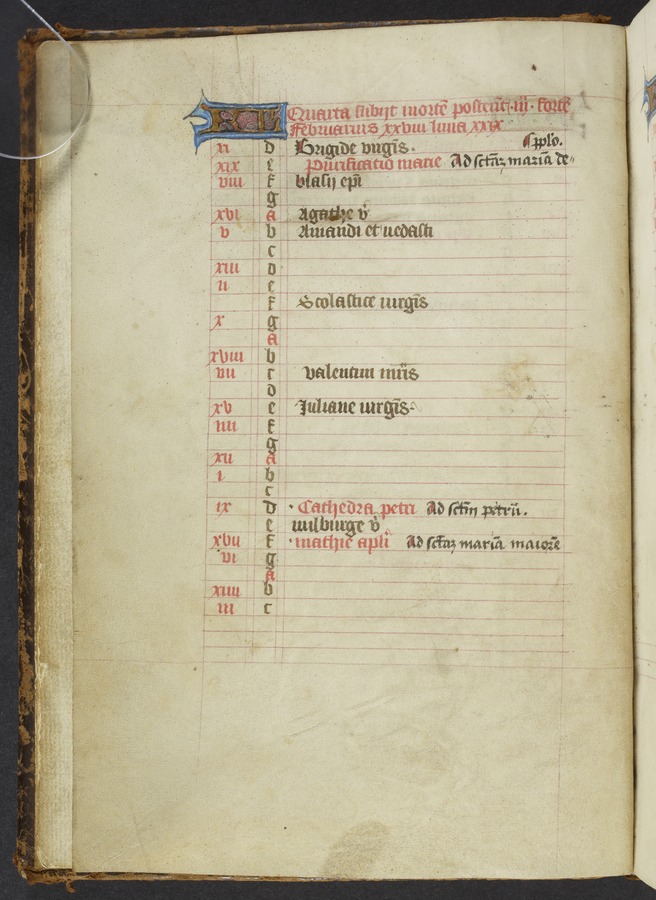 KL Quarta subijt mortē prosternit iij forte
Februarius xxviii luna xxix
xi d Brigide virgīs. ppło.
xix e Purificatio marie Ad sctāz mariā de
viii f blasij epī
g
xvi a Agathe v̄
v b Amandi et vedasti
c
xiii d
ii e
f Scolastice virgīs
x g
a
xviii b
vii c valentini mr̄is
d
xv e Juliane virgīs
iiii f
g
xii a
i b
c
ix d Cathedra petri Ad sctm̄ petrū.
e wilburge v̄
xvii f mathie apłi Ad sctāz mariā maiorē
vi g
a
xiiii b
iii c